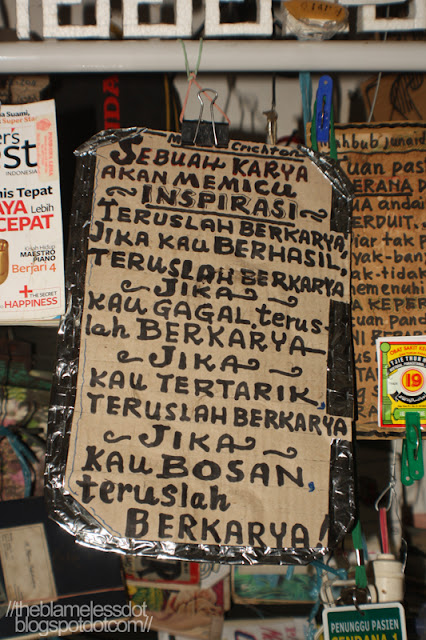 Crichton
SEBUAH KARYA
AKAN MEMICU
INSPIRASI
TERUSLAH BERKARYA,
JIKA KAU BERHASIL,
TERUSLAH BERKARYA
JIKA
KAU GAGAL, terus-
lah BERKARYA
JIKA
KAU TERTARIK,
TERUSLAH BERKARYA
JIKA
KAU BOSAN,
teruslah
BERKARYA!
er's
est
INDONESIA
nis Tepat
AYA Lebih
CEPAT
Kisah Hidup
MAESTRO
PIANO
Berjari 4
+ THE SECRET
HAPPINESS
hbub junaid
uan pas
ERANA D
ua andai
ERDUIT.
yak-ban
ak-tidak
memenuhi
A KEPER
uan pand
19
PENUNGGU PASIEN
//theblamelessdot
blogspotdotcom//